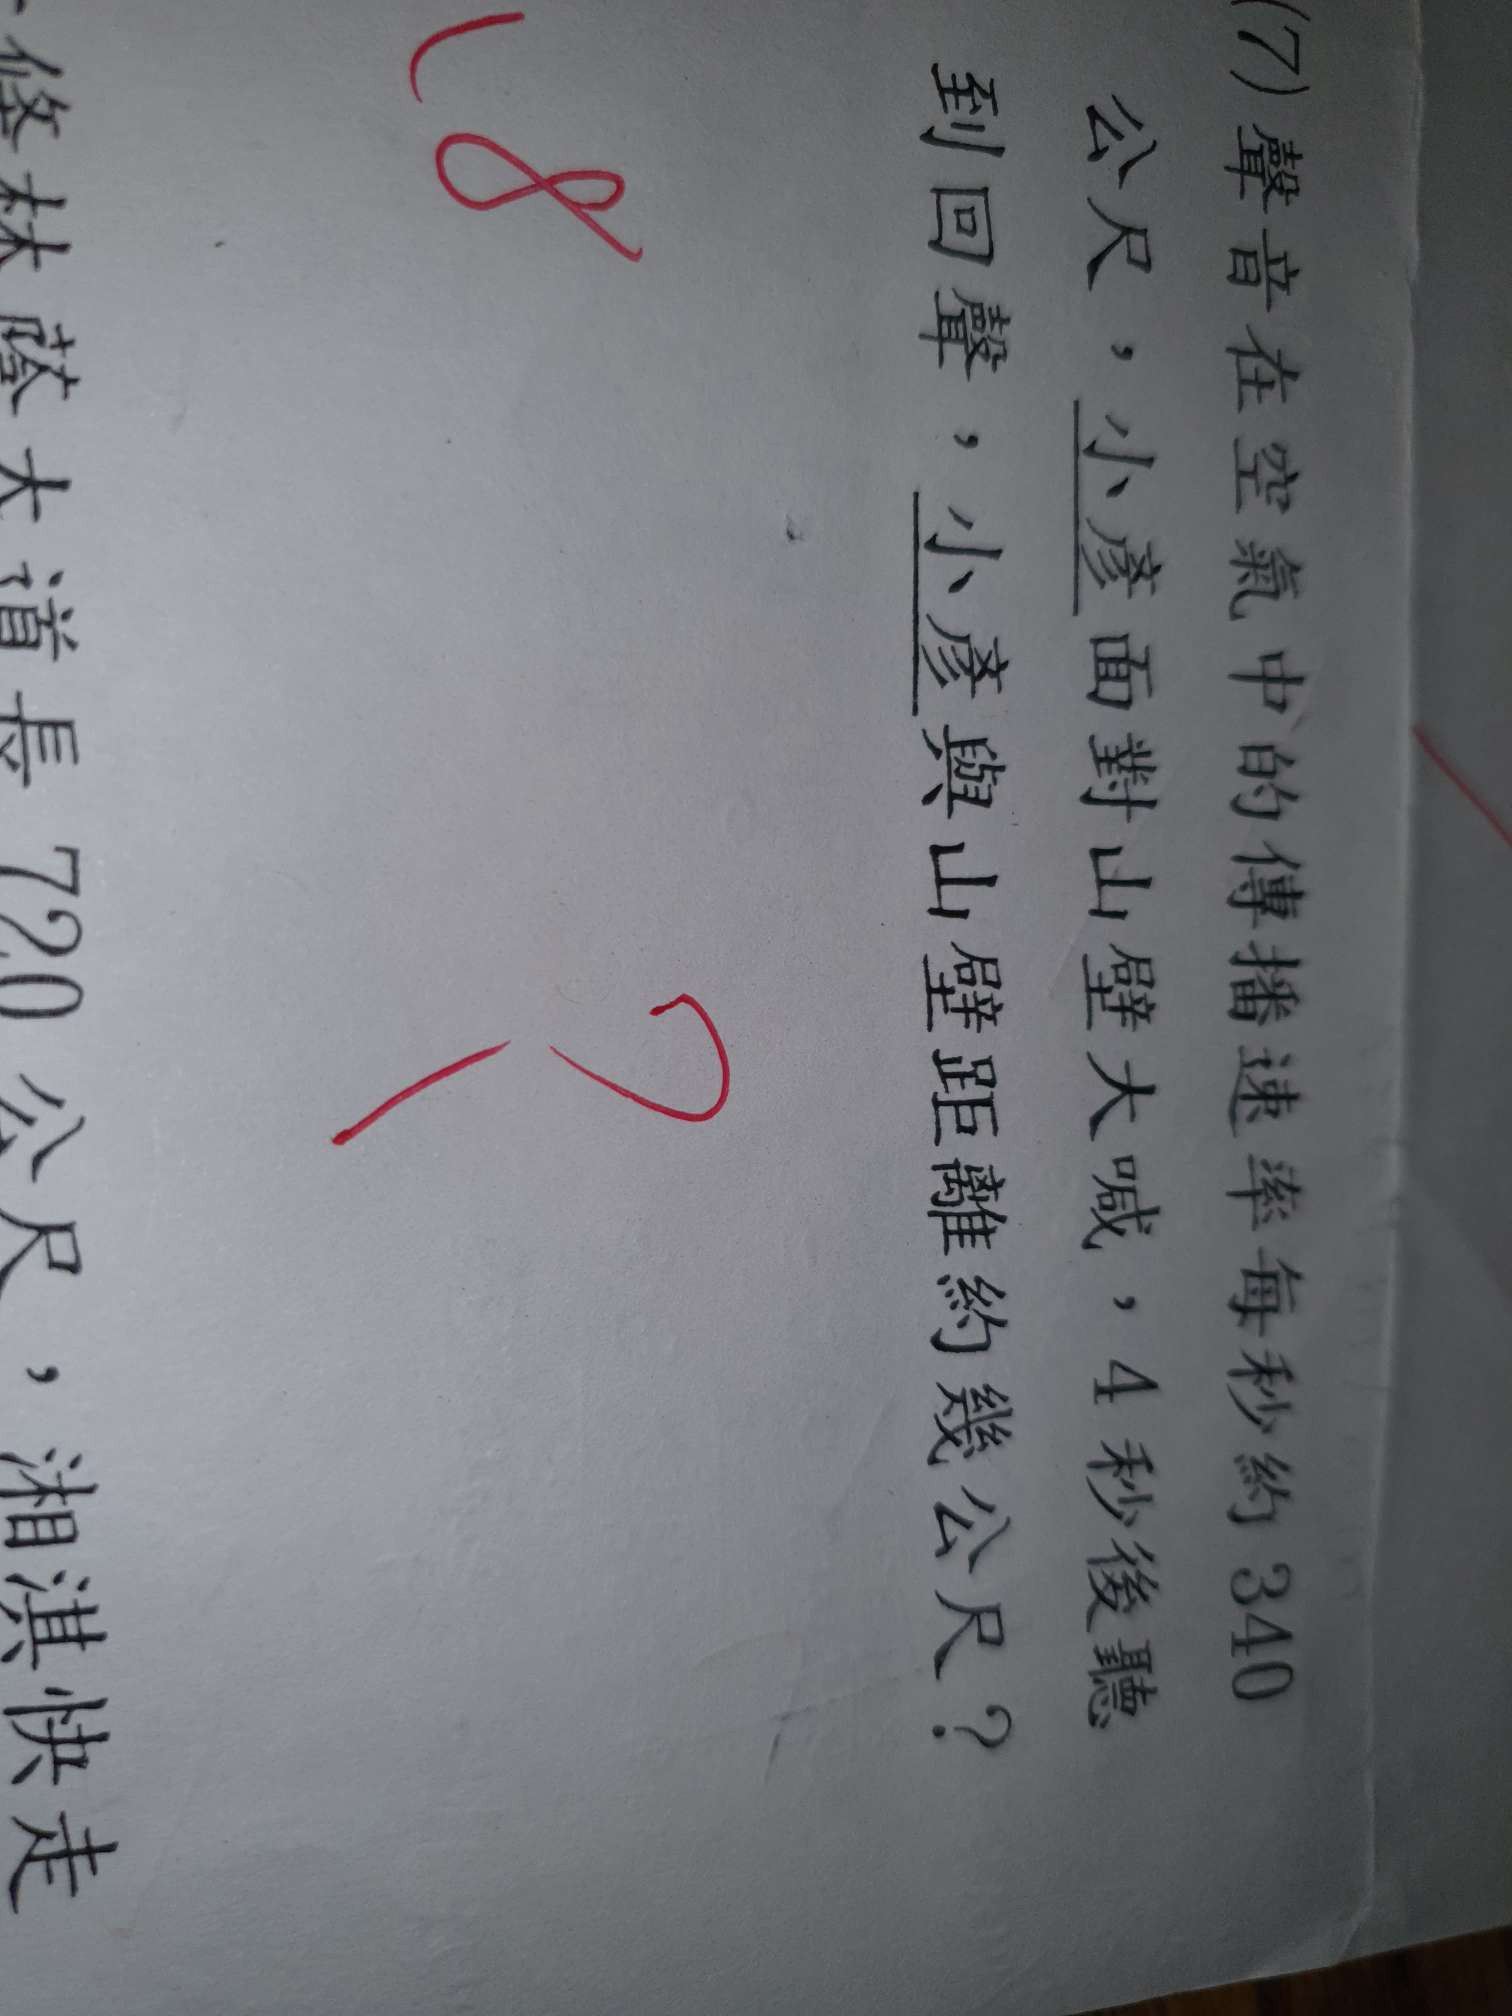 (7)聲音在空氣中的傳播速率每秒約 340
公尺，小彥面對山壁大喊，4 秒後聽
到回聲，小彥與山壁距離約幾公尺？
8
?
修林蔭大道長 720 公尺，湘淇快走